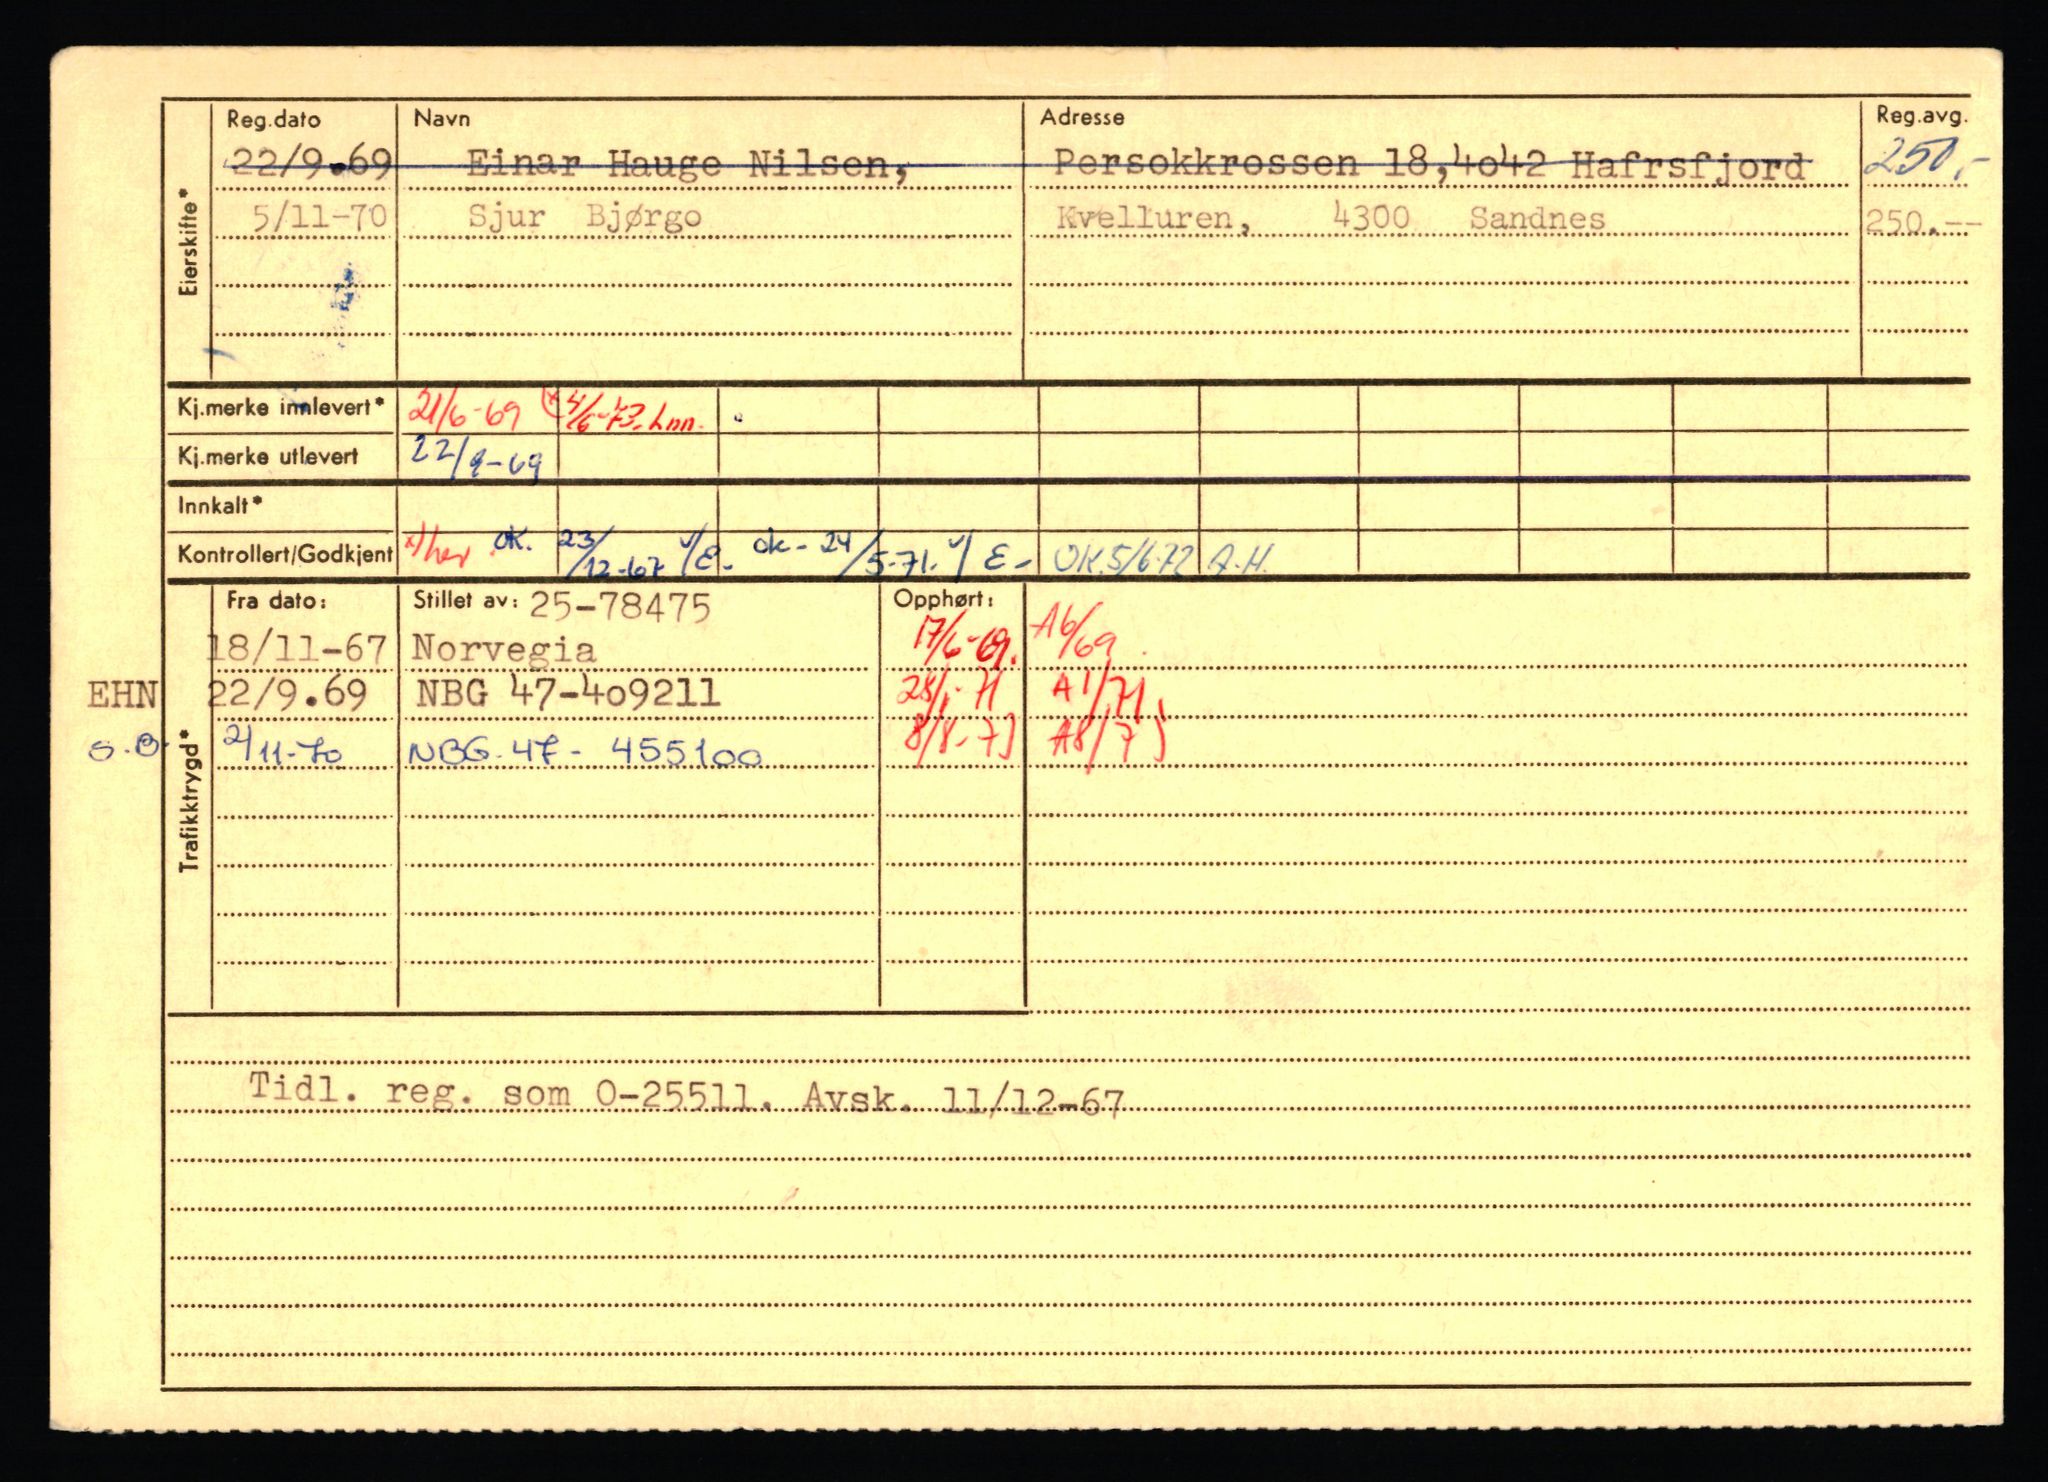 Reg.dato Navn Adresse Reg.avg.
22/9.69 Einar Hauge Nilsen, Persokkrossen 18,4o42 Hafrsfjord 250,-
5/11-70 Sjur Bjørgo Kvelluren, 4300 Sandnes 250.--
Eierskifte*
Kj.merke innlevert* 21/6-69 4/6-73. Lnn.
Kj.merke utlevert 22/9-69
Innkalt*
Kontrollert/Godkjent x) her OK. 23/12-67 v/E- ok- 24/5-71. v/E- OK.5/6-72 A.H.
Fra dato: Stillet av: 25-78475 Opphørt:
18/11-67 Norvegia 17/6-69. A6/69
EHN 22/9.69 NBG 47-4o9211 28/1-71 A1/71
S.B. 2/11-70 NBG.47- 455100 8/8-73 A8/73
Trafikktrygd*
Tidl. reg. som O-25511. Avsk. 11/12-67